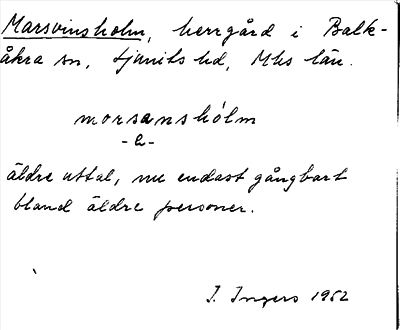 Marsvinsholm, herrgård i Balk-
åkra sn, Ljunits hd, Mhs län.
morsanshólm
-e-
äldre uttal, nu endast gångbart
bland äldre personer.
I. Ingers 1952